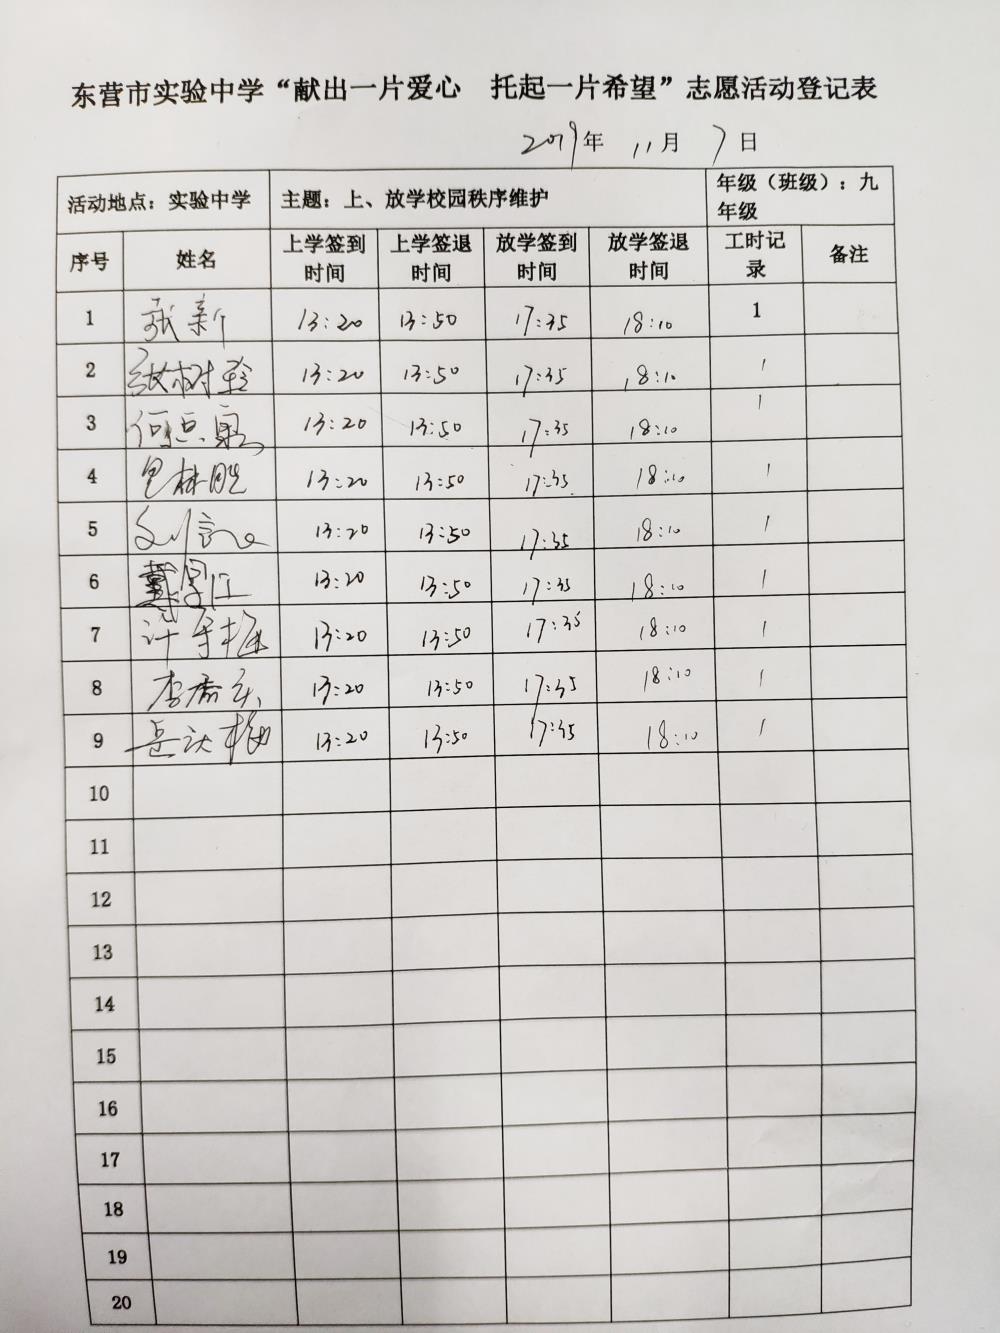 东营市实验中学“献出一片爱心 托起一片希望”志愿活动登记表
2019年 11月 7日
活动地点：实验中学 主题：上、放学校园秩序维护 年级（班级）：九年级
序号 姓名 上学签到时间 上学签退时间 放学签到时间 放学签退时间 工时记录 备注
1 13:20 13:50 17:35 18:10 1
2 13:20 13:50 17:35 18:10 1
3 13:20 13:50 17:35 18:10 1
4 13:20 13:50 17:35 18:10 1
5 13:20 13:50 17:35 18:10 1
6 13:20 13:50 17:35 18:10 1
7 13:20 13:50 17:35 18:10 1
8 13:20 13:50 17:35 18:10 1
9 13:20 13:50 17:35 18:10 1
10
11
12
13
14
15
16
17
18
19
20